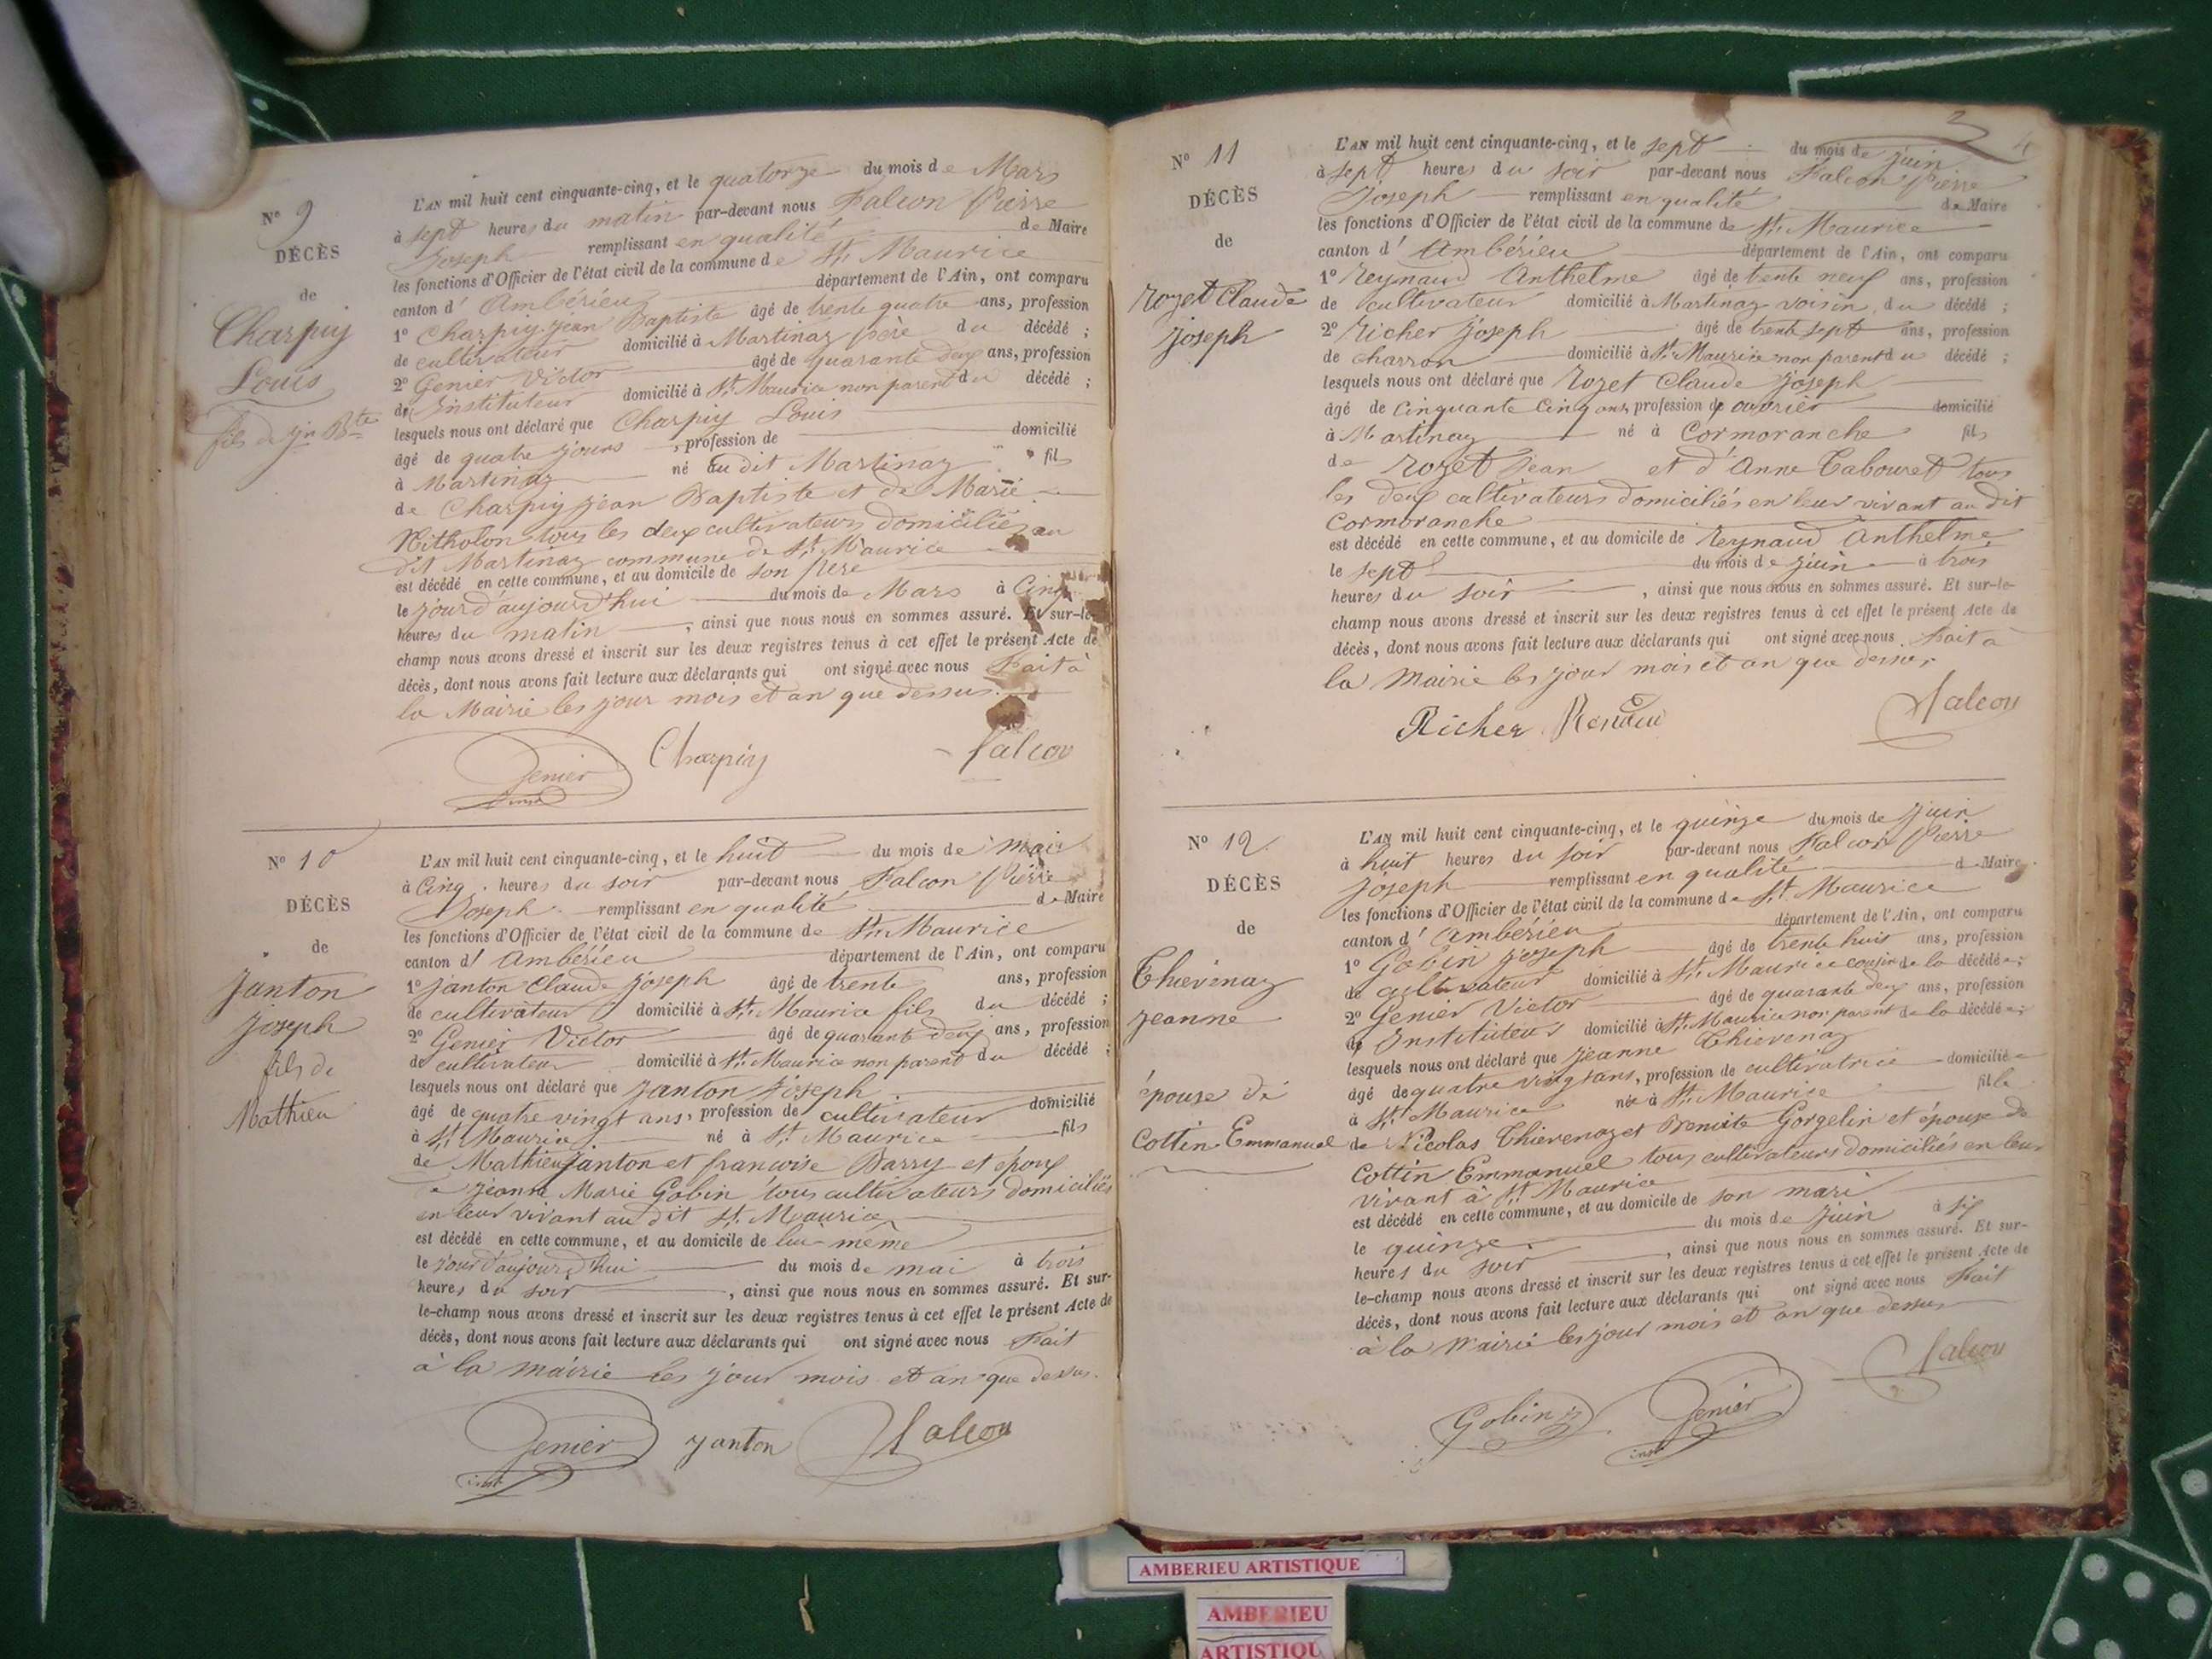 N° 9
DÉCÈS
de
Charpiy
Louis
fils de Jn Bte
L'AN mil huit cent cinquante-cinq, et le quatorze du mois de Mars
à sept heures du matin par-devant nous Falcon Pierre
Joseph remplissant en qualité de Maire
les fonctions d'Officier de l'état civil de la commune de St. Maurice
canton d' Ambérieu département de l'Ain, ont comparu
1° Charpiy jean Baptiste âgé de trente quatre ans, profession
de cultivateur domicilié à Martinaz père du décédé ;
2° Genier Victor âgé de quarante deux ans, profession
de Instituteur domicilié à St. Maurice non parent du décédé ;
lesquels nous ont déclaré que Charpiy Louis
âgé de quatre jours , profession de domicilié
à Martinaz né au dit Martinaz fils
de Charpiy jean Baptiste et de Marie
tous les deux cultivateurs domiciliés au
dit Martinaz commune de St. Maurice
est décédé en cette commune, et au domicile de son père
le jour d'aujourd'hui du mois de Mars à Cinq
heures du matin , ainsi que nous nous en sommes assuré. Et sur-le-
champ nous avons dressé et inscrit sur les deux registres tenus à cet effet le présent Acte de
décès, dont nous avons fait lecture aux déclarants qui ont signé avec nous Fait à
la Mairie les jour mois et an que dessus.
Genier Charpiy Falcon
inst
N° 10
DÉCÈS
de
Janton
Joseph
fils de
Mathieu
L'AN mil huit cent cinquante-cinq, et le huit du mois de mai
à Cinq heures du soir par-devant nous Falcon Pierre
Joseph remplissant en qualité de Maire
les fonctions d'Officier de l'état civil de la commune de St. Maurice
canton d' Ambérieu département de l'Ain, ont comparu
1° Janton Claude Joseph âgé de trente ans, profession
de cultivateur domicilié à St. Maurice fils du décédé ;
2° Genier Victor âgé de quarante deux ans, profession
de cultivateur domicilié à St. Maurice non parent du décédé ;
lesquels nous ont déclaré que Janton Joseph
âgé de quatre vingt ans, profession de cultivateur domicilié
à St. Maurice né à St. Maurice fils
de Mathieu Janton et françoise Barry et époux
jeanne Marie Gobin tous cultivateurs domiciliés
en leur vivant au dit St. Maurice
est décédé en cette commune, et au domicile de lui-même
le jour d'aujourd'hui du mois de mai à trois
heures du soir , ainsi que nous nous en sommes assuré. Et sur-
le-champ nous avons dressé et inscrit sur les deux registres tenus à cet effet le présent Acte de
décès, dont nous avons fait lecture aux déclarants qui ont signé avec nous Fait
à la mairie les jour mois et an que dessus.
Genier Janton Falcon
inst
4
N° 11
DÉCÈS
de
Rozet Claude
Joseph
L'AN mil huit cent cinquante-cinq, et le sept du mois de juin
à sept heures du soir par-devant nous Falcon Pierre
Joseph remplissant en qualité de Maire
les fonctions d'Officier de l'état civil de la commune de St. Maurice
canton d' Ambérieu département de l'Ain, ont comparu
1° Reynaud Anthelme âgé de trente neuf ans, profession
de cultivateur domicilié à Martinaz voisin du décédé ;
2° Richer Joseph âgé de trente sept ans, profession
de charron domicilié à St. Maurice non parent du décédé ;
lesquels nous ont déclaré que Rozet Claude Joseph
âgé de Cinquante Cinq ans, profession de ouvrier domicilié
à Martinaz né à Cormoranche fils
de Rozet Jean et d'Anne Tabouret tous
les deux cultivateurs domiciliés en leur vivant au dit
Cormoranche
est décédé en cette commune, et au domicile de Reynaud Anthelme
le sept du mois de juin à trois
heures du soir , ainsi que nous nous en sommes assuré. Et sur-le-
champ nous avons dressé et inscrit sur les deux registres tenus à cet effet le présent Acte de
décès, dont nous avons fait lecture aux déclarants qui ont signé avec nous Fait à
la Mairie les jour mois et an que dessus
Richer Falcon
N° 12
DÉCÈS
de
Thievenaz
Jeanne
épouse de
Cottin Emmanuel
L'AN mil huit cent cinquante-cinq, et le quinze du mois de juin
à huit heures du soir par-devant nous Falcon Pierre
Joseph remplissant en qualité de Maire
les fonctions d'Officier de l'état civil de la commune de St. Maurice
canton d' Ambérieu département de l'Ain, ont comparu
1° Gobin Joseph âgé de trente huit ans, profession
de cultivateur domicilié à St. Maurice cousin de la décédée ;
2° Genier Victor âgé de quarante deux ans, profession
de Instituteur domicilié à St. Maurice non parent de la décédée ;
lesquels nous ont déclaré que Jeanne Thievenaz
âgé de quatre vingt ans, profession de cultivatrice domiciliée
à St. Maurice née à St. Maurice fille
de Nicolas Thievenaz et Benoite Gorgelin et épouse de
Cottin Emmanuel tous cultivateurs domiciliés en leur
vivant à St. Maurice
est décédé en cette commune, et au domicile de son mari
le quinze du mois de juin à six
heures du soir , ainsi que nous nous en sommes assuré. Et sur-
le-champ nous avons dressé et inscrit sur les deux registres tenus à cet effet le présent Acte de
décès, dont nous avons fait lecture aux déclarants qui ont signé avec nous Fait
à la mairie les jour mois et an que dessus
Gobin Genier Falcon
inst
AMBERIEU ARTISTIQUE
AMBERIEU
ARTISTIQU